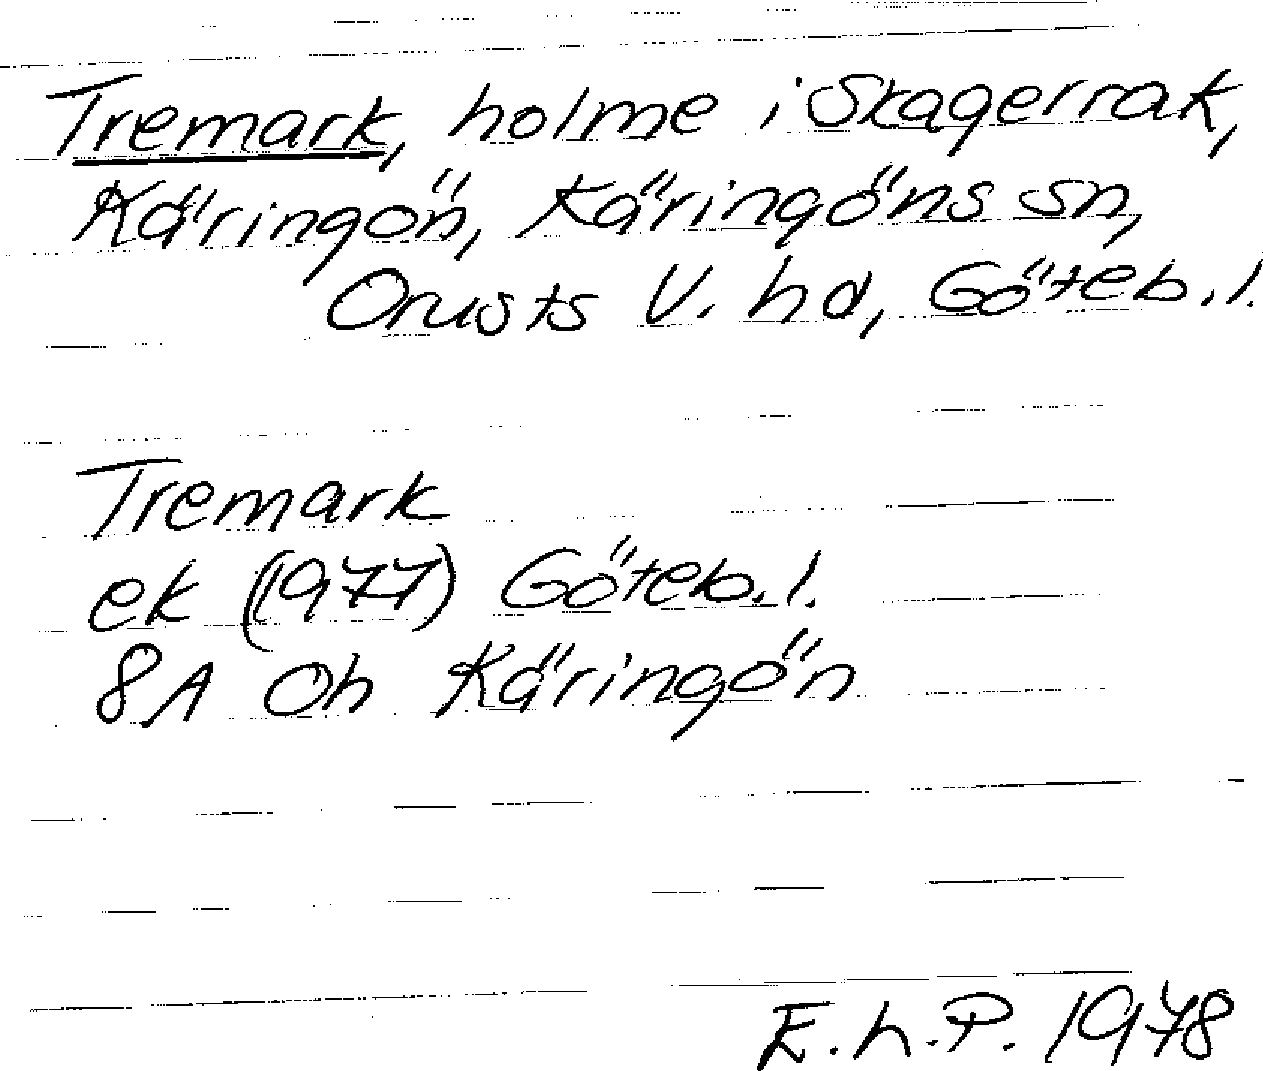 Tremark, holme i Skagerrak,
Käringön, Käringöns sn,
Orusts V. hd, Göteb.l.
Tremark
ek (1977) Göteb.l.
8A Oh Käringön
E.h.P. 1978